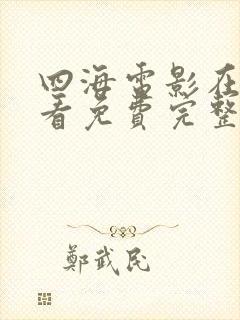 四海雷影在
看免费完整
鄭武民